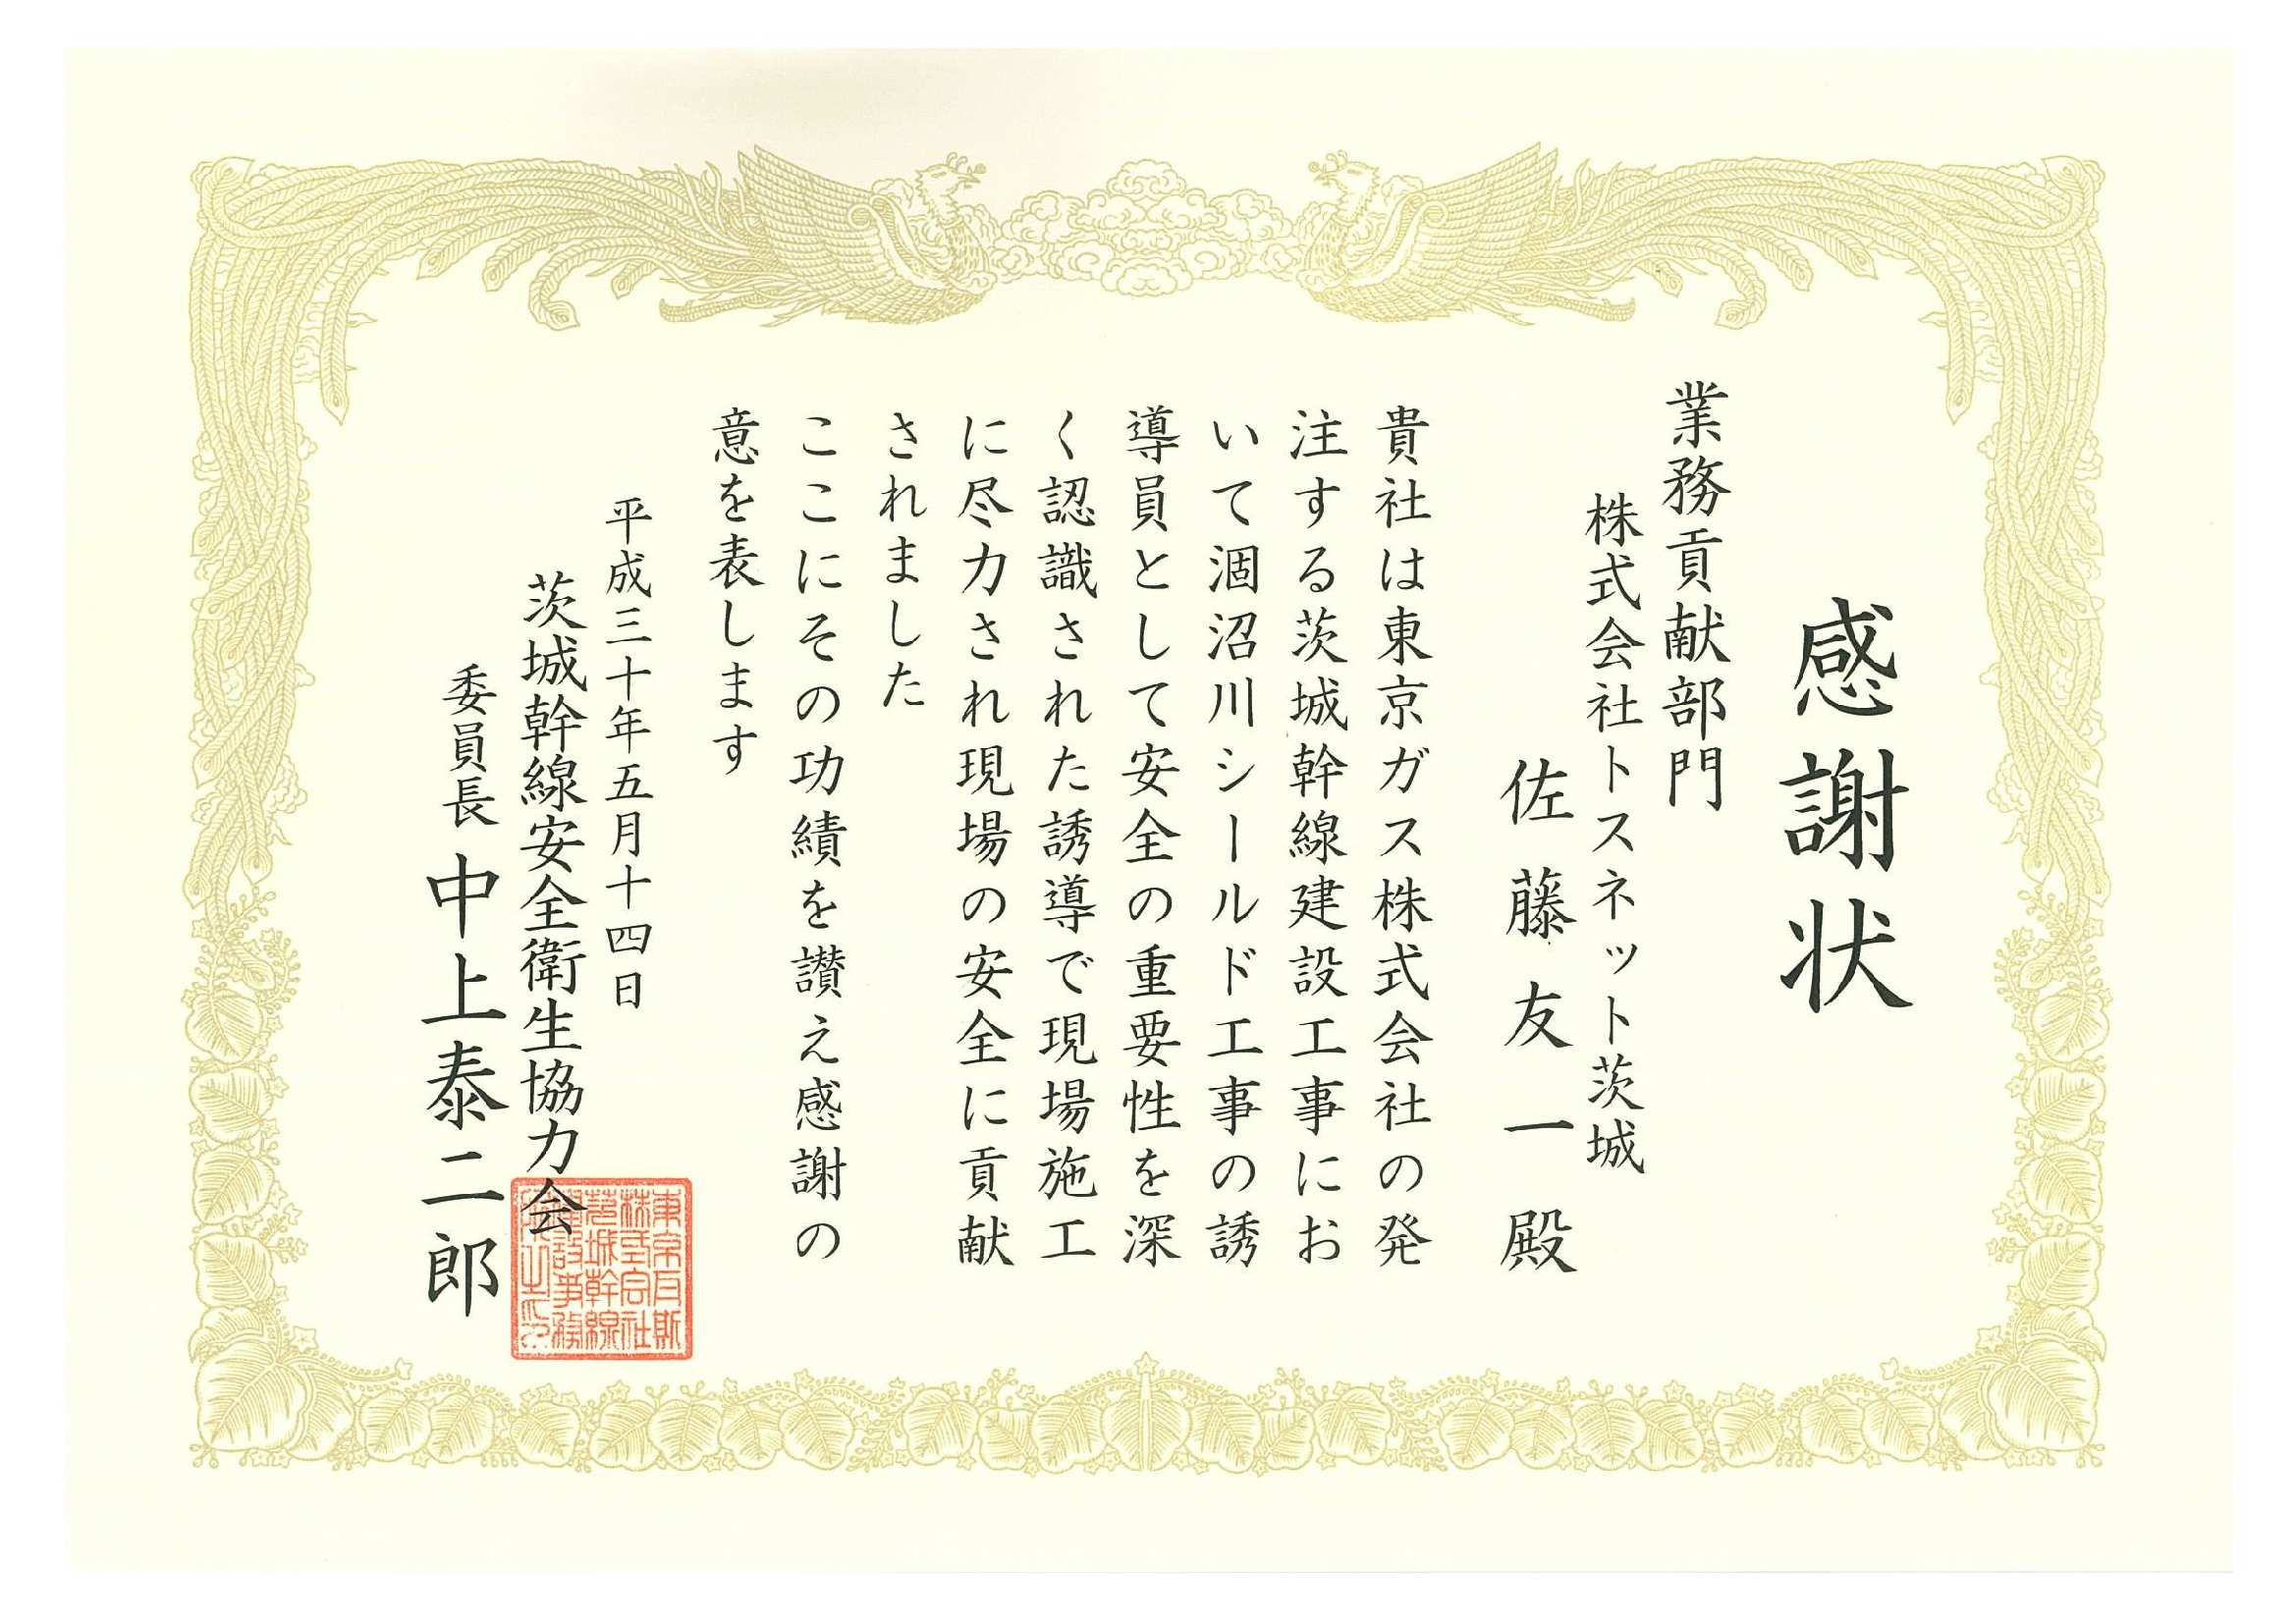 感謝状
業務貢献部門
株式会社トスネット茨城
佐藤友一殿
貴社は東京ガス株式会社の発
注する茨城幹線建設工事にお
いて涸沼川シールド工事の誘
導員として安全の重要性を深
く認識された誘導で現場施工
に尽力され現場の安全に貢献
されました
ここにその功績を讃え感謝の
意を表します
平成三十年五月十四日
茨城幹線安全衛生協力会
委員長 中上泰二郎
東京瓦斯
株式会社
茨城幹線
建設事務